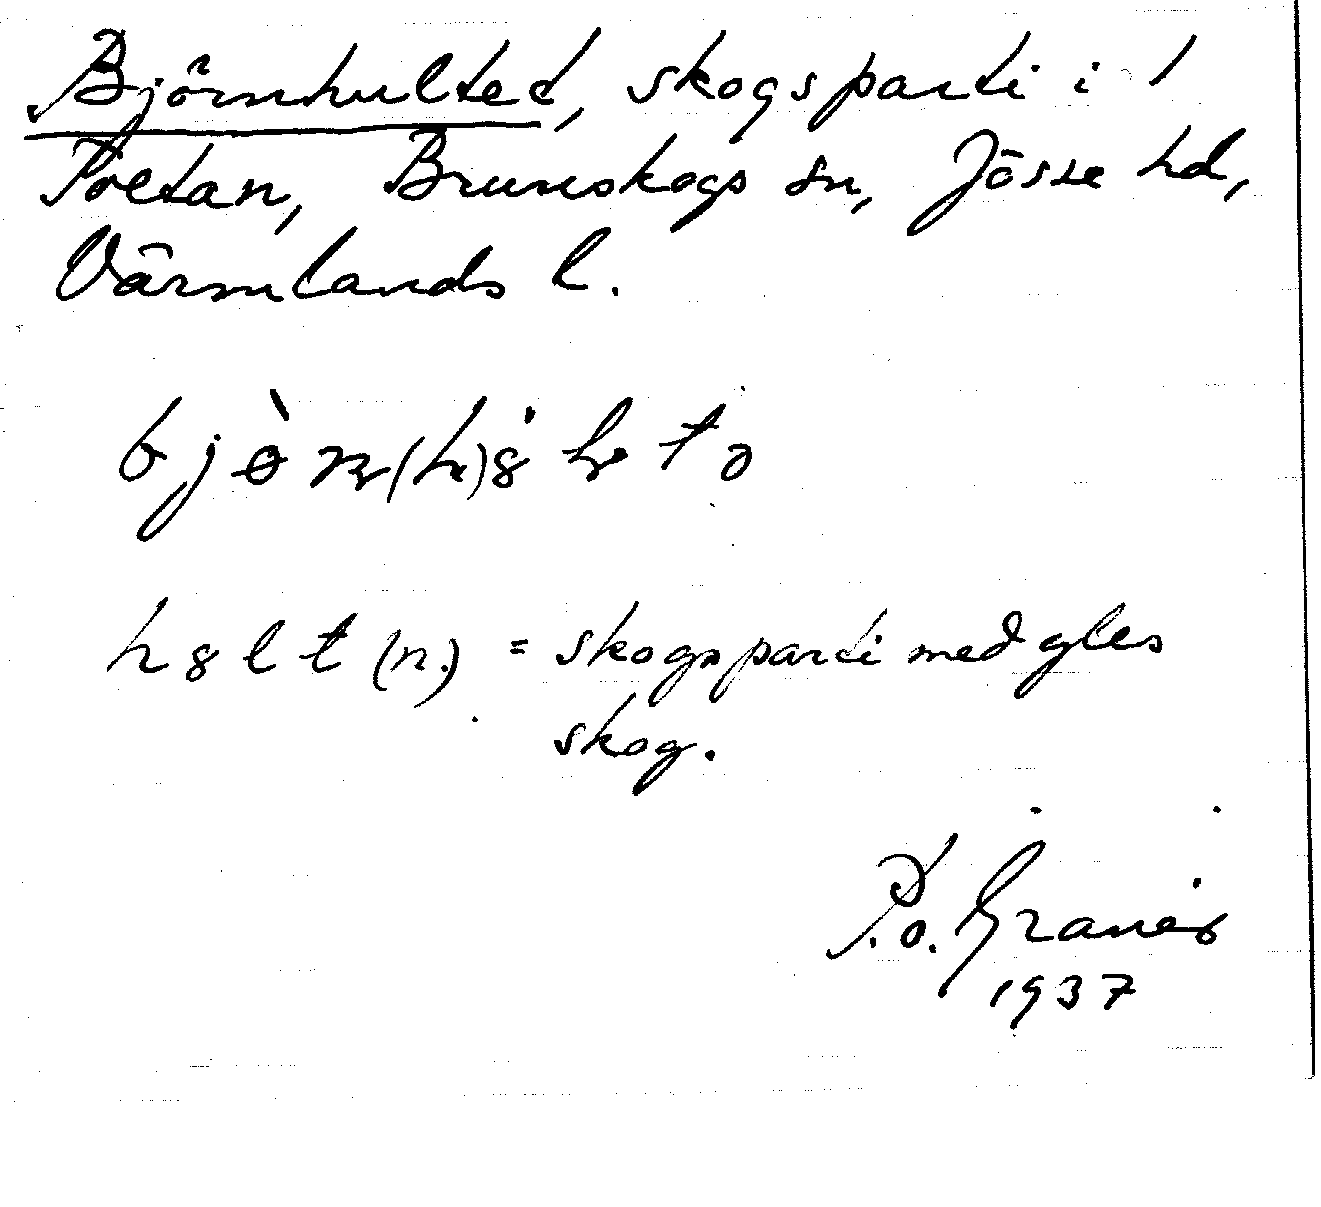 Björnhultet, skogsparti i 1
Poltan, Brunskogs sn, Jösse hd,
Värmlands l.
hslt (n.) = skogsparti med gles
skog.
P.o. Granér
1937